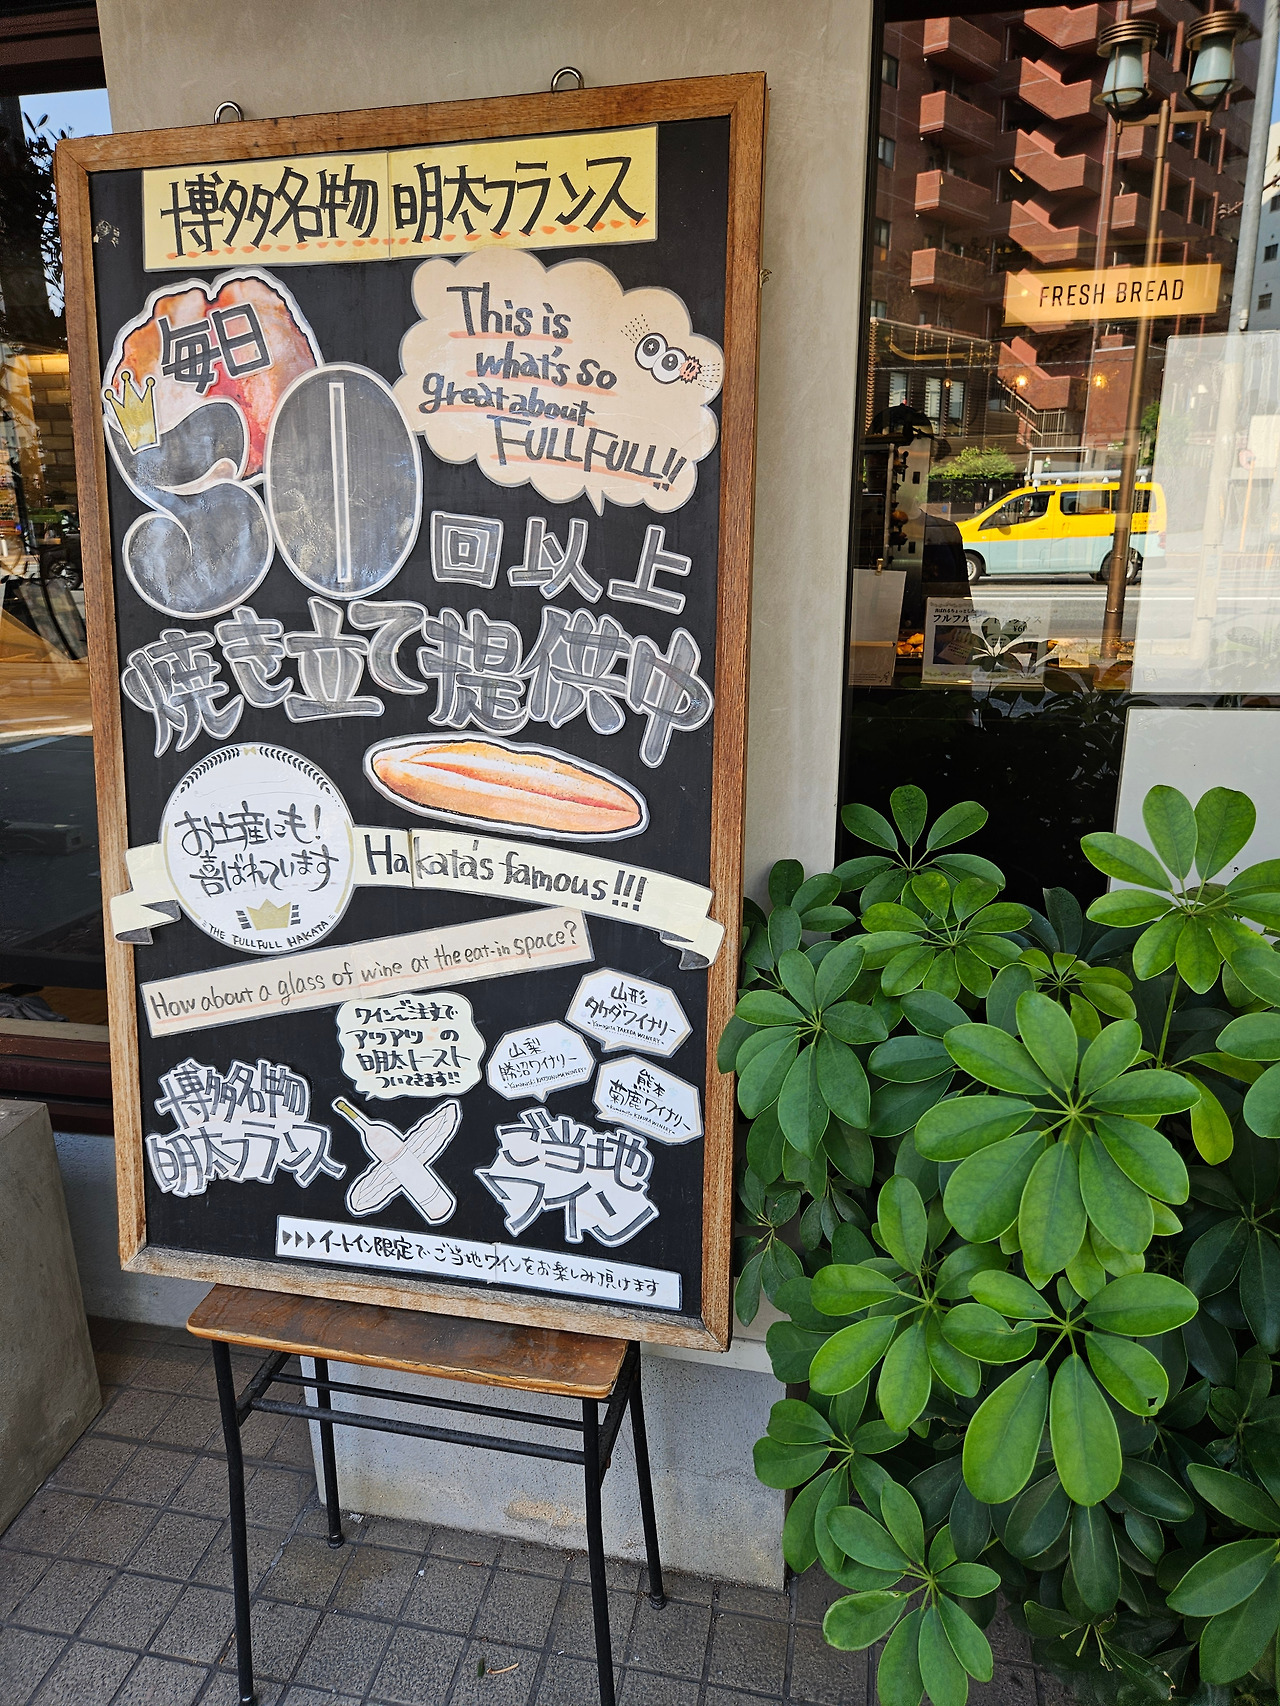 博多名物 明太フランス
毎日
50
回以上
焼き立て提供中
This is
what's so
great about
FULLFULL!!
お土産にも!
喜ばれています
THE FULLFULL HAKATA
Hakata's famous!!!
How about a glass of wine at the eat-in space?
ワインご注文で
アツアツの
明太トースト
ついてきます!!
山形
タケダワイナリー
-Yamagata TAKEDA WINERY-
山梨
勝沼ワイナリー
-Yamanashi KATSUNUMA WINERY-
熊本
菊鹿ワイナリー
-Kumamoto KIKUKA WINERY-
博多名物
明太フランス
ご当地
ワイン
イートイン限定でご当地ワインをお楽しみ頂けます
FRESH BREAD